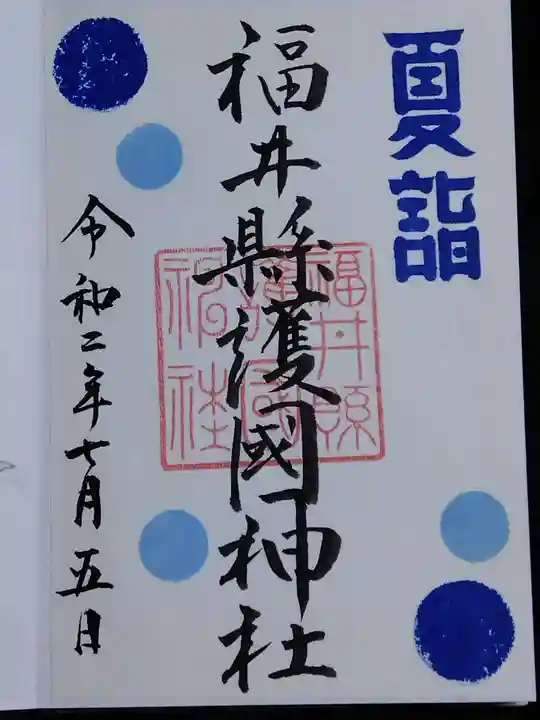 夏詣
福井縣護國神社
福井縣
護國
神社
令和二年七月五日